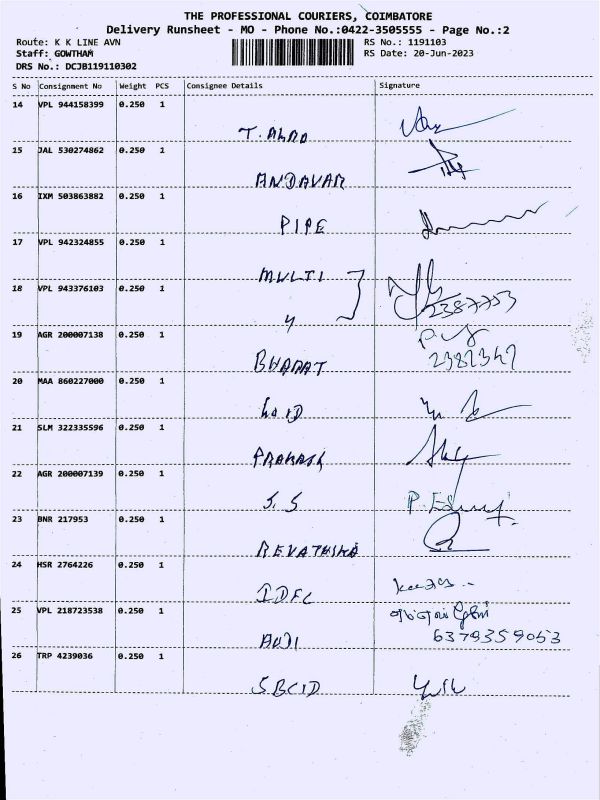 THE PROFESSIONAL COURIERS, COIMBATORE
Delivery Runsheet - MO - Phone No.:0422-3505555 - Page No.:2
Route: K K LINE AVN RS No.: 1191103
Staff: GOWTHAM RS Date: 20-Jun-2023
DRS No.: DCJB119110302
S No Consignment No Weight PCS Consignee Details Signature
14 VPL 944158399 0.250 1
15 JAL 530274862 0.250 1
ANDAVAR
16 IXM 503863882 0.250 1
PIPE
17 VPL 942324855 0.250 1
MULTI
18 VPL 943376103 0.250 1
2387753
19 AGR 200007138 0.250 1
BHARAT 2382347
20 MAA 860227000 0.250 1
21 SLM 322335596 0.250 1
PRAKASH
22 AGR 200007139 0.250 1
S.S
23 BNR 217953 0.250 1
REVATHIKA
24 HSR 2764226 0.250 1
IDFC
25 VPL 218723538 0.250 1
AUDI 6379359053
26 TRP 4239036 0.250 1
SBCID